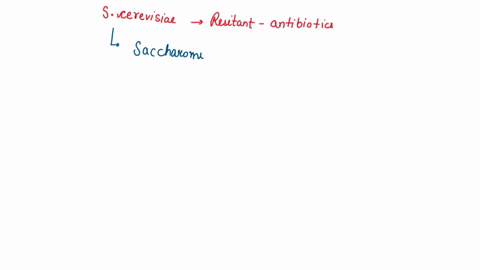 S. cerevisiae → Resitant - antibiotics
↳ Saccharome